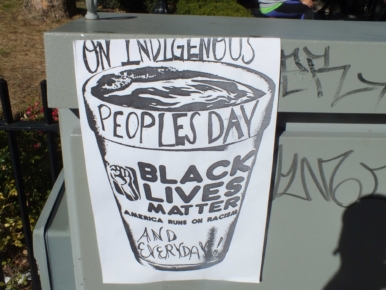 ON INDIGENOUS
PEOPLES DAY
BLACK
LIVES
MATTER
AMERICA RUNS ON RACISM
AND
EVERYDAY!